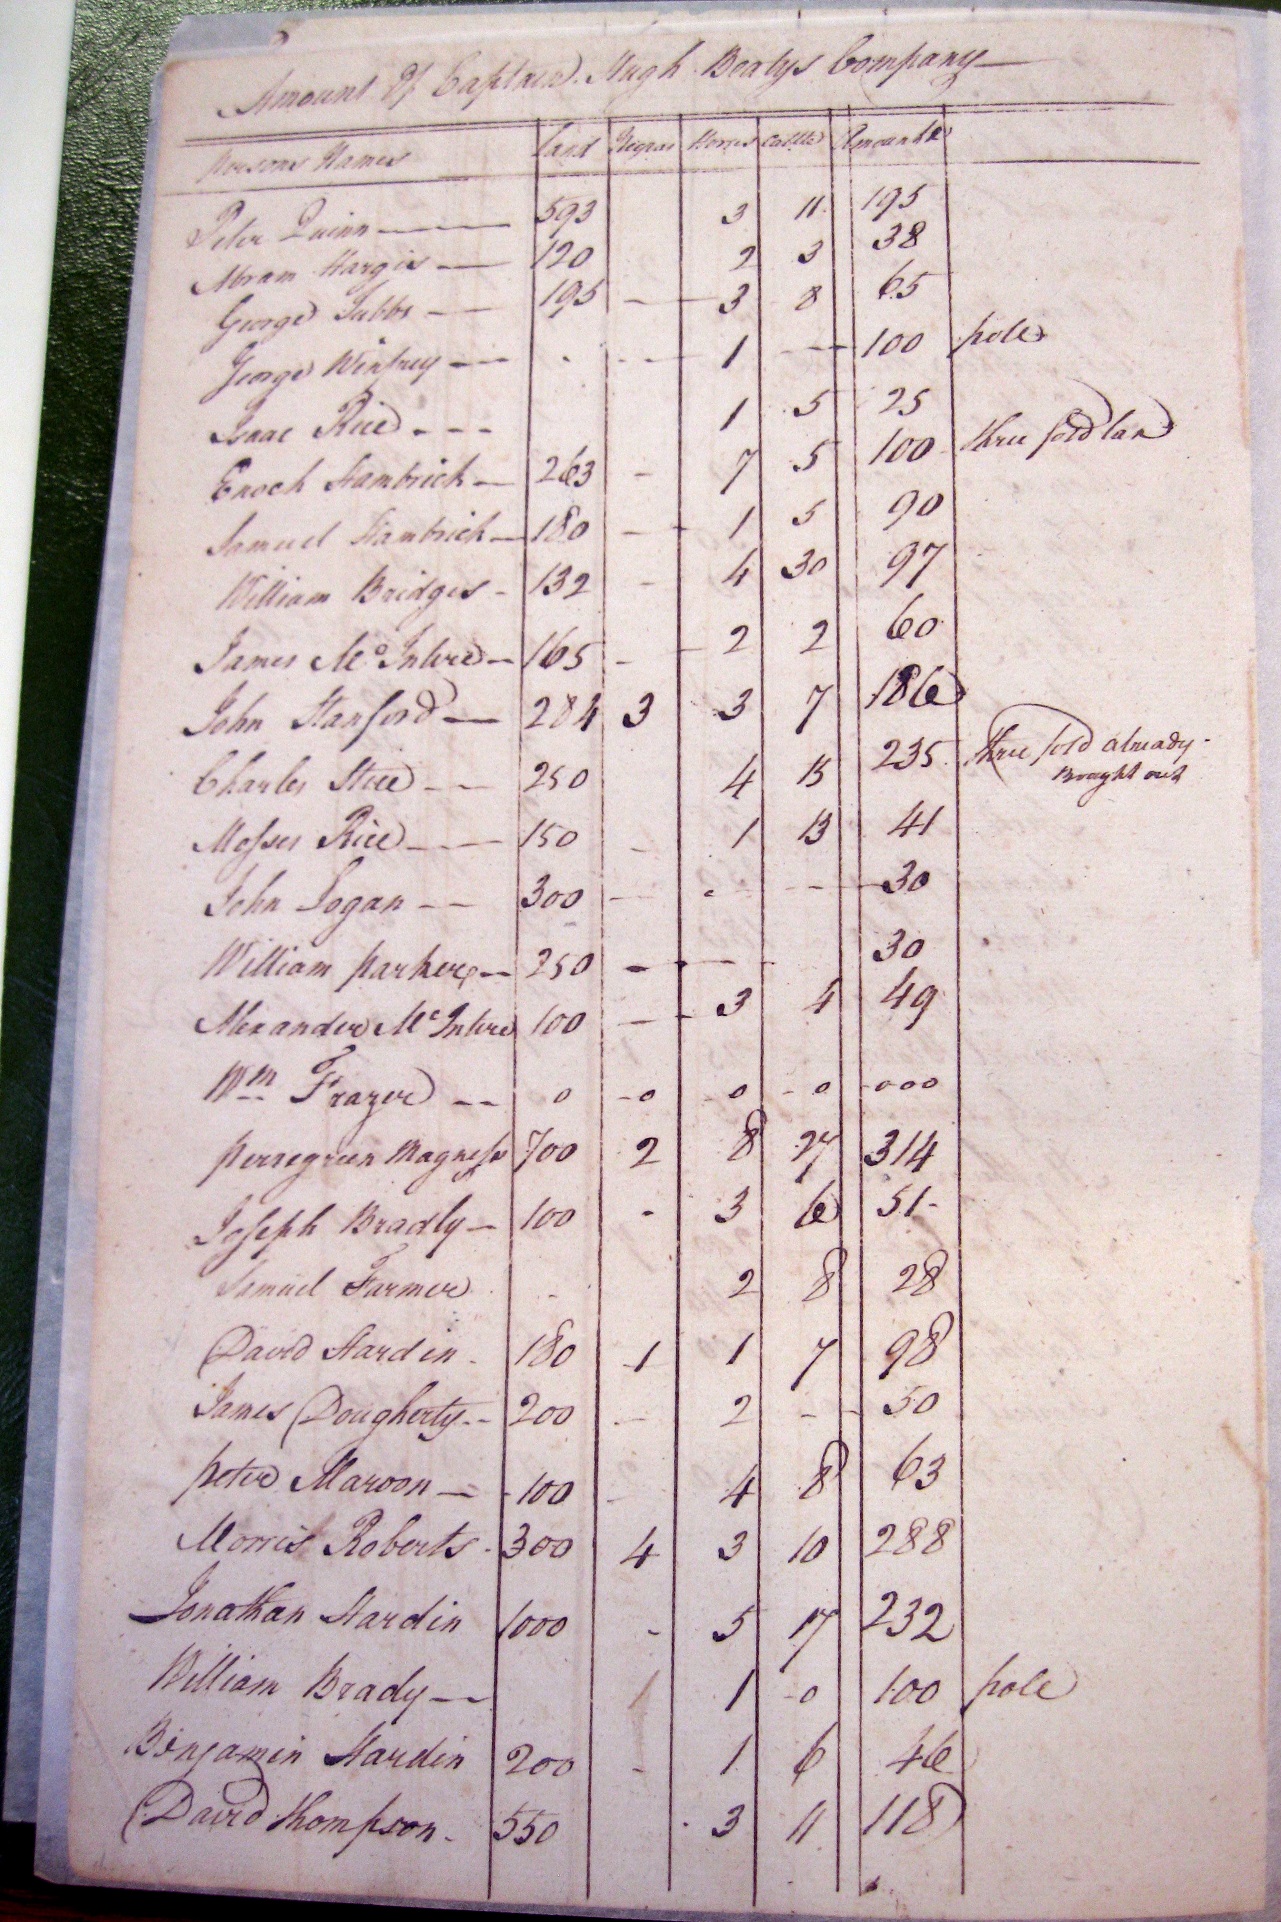 Amount Of Captain Hugh Beatys Company
persons Names Land Negroes Horses Cattle Amounts
Peter Quinn 593 3 11 195
Abram Hargis 120 2 3 38
George Tubbs 195 3 8 65
George Winfrey 1 100 pole
Isaac Rice 1 5 25
Enoch Hambrick 263 7 5 100 three fold tax
Samuel Hambrick 180 1 5 90
William Bridges 132 4 30 97
James Mc Intire 165 2 2 60
John Stanford 284 3 3 7 186
Charles Stice 250 4 15 235 three fold already Brought out
Mosses Rice 150 1 13 41
John Logan 300 30
William parker 250 30
Alexander Mc Intire 100 3 4 49
Wm Frazer 0 0 0 0 000
perregreen Magness 700 2 8 27 314
Joseph Bradly 100 3 6 51
Samuel Farmer 2 8 28
David Hardin 180 1 1 7 98
James Dougherty 200 2 50
peter Maroon 100 4 8 63
Morris Roberts 300 4 3 10 288
Jonathan Hardin 1000 5 17 232
William Brady 1 1 0 100 pole
Binjamin Hardin 200 1 6 46
David thompson 550 3 11 118